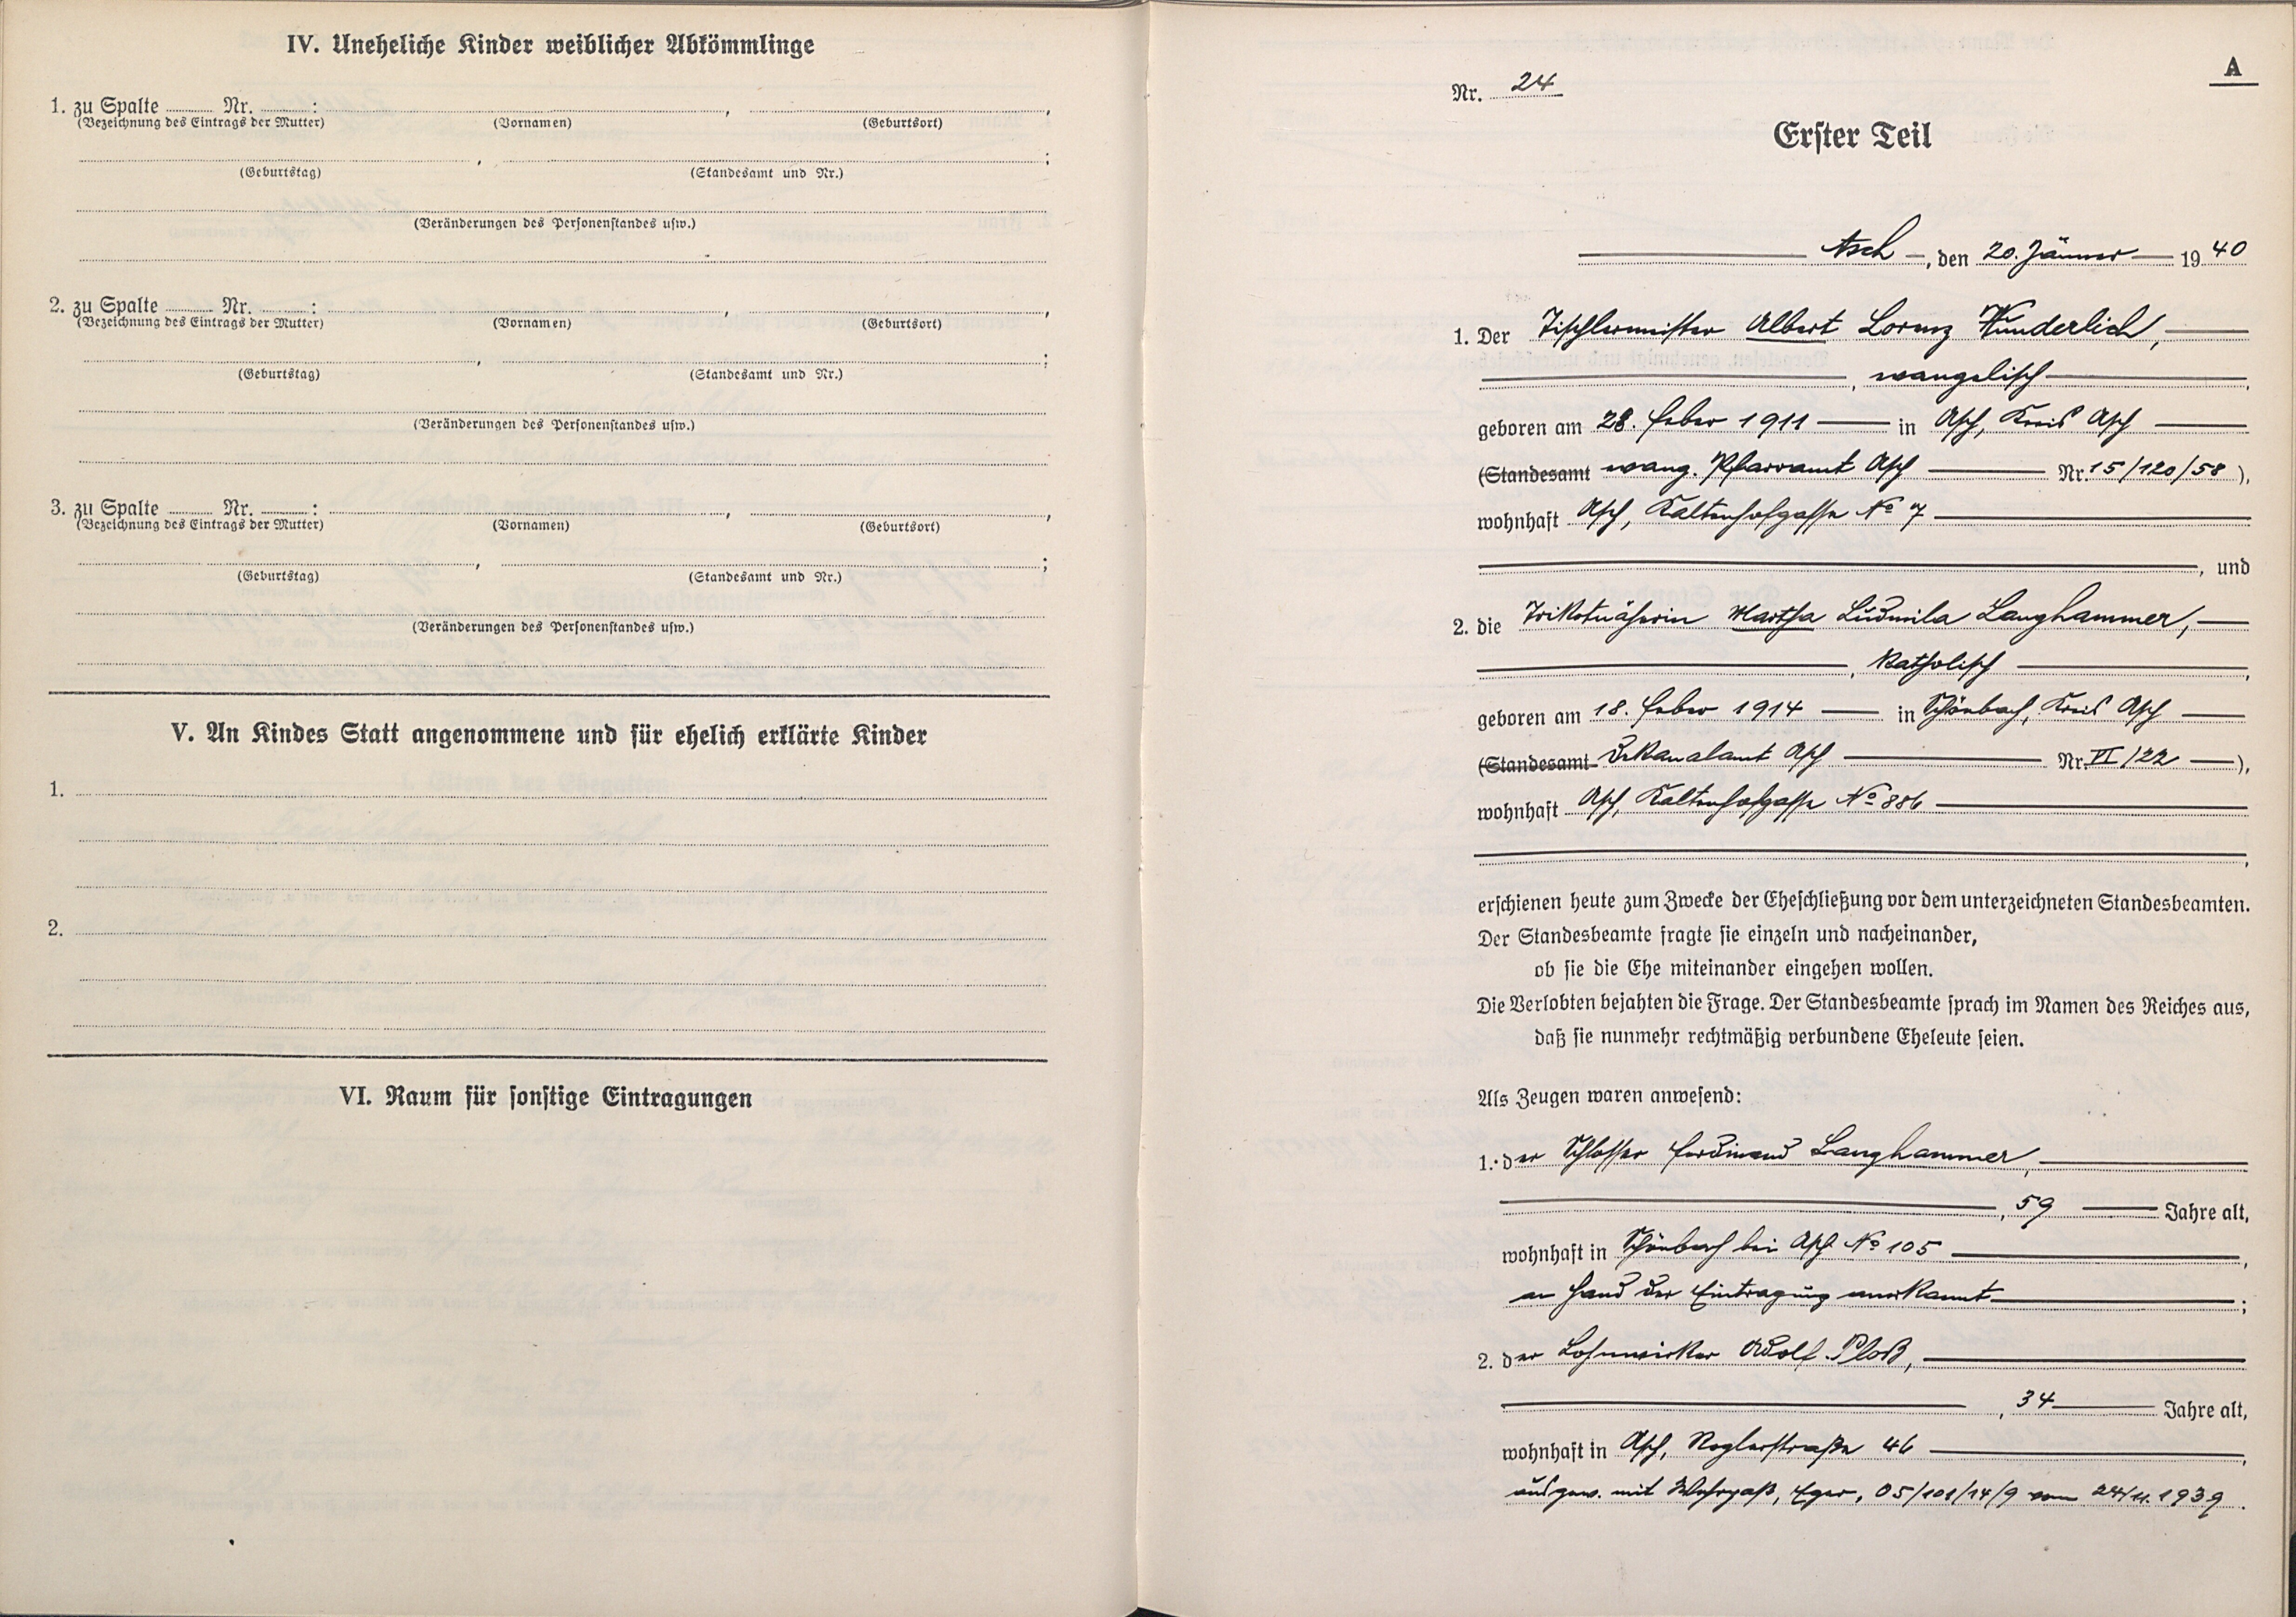 IV. Uneheliche Kinder weiblicher Abkömmlinge
1. zu Spalte ........ Nr. ........ :
(Bezeichnung des Eintrags der Mutter) (Vornamen) (Geburtsort)
(Geburtstag) (Standesamt und Nr.)
(Veränderungen des Personenstandes usw.)
2. zu Spalte ........ Nr. ........ :
(Bezeichnung des Eintrags der Mutter) (Vornamen) (Geburtsort)
(Geburtstag) (Standesamt und Nr.)
(Veränderungen des Personenstandes usw.)
3. zu Spalte ........ Nr. ........ :
(Bezeichnung des Eintrags der Mutter) (Vornamen) (Geburtsort)
(Geburtstag) (Standesamt und Nr.)
(Veränderungen des Personenstandes usw.)
V. An Kindes Statt angenommene und für ehelich erklärte Kinder
1.
2.
VI. Raum für sonstige Eintragungen
A
Nr. 24
Erster Teil
Asch, den 20. Jänner 1940
1. Der Tischlermeister Albert Lorenz Wunderlich,
, evangelisch,
geboren am 28. Feber 1911 in Asch, Kreis Asch
(Standesamt evang. Pfarramt Asch Nr. 15/120/58),
wohnhaft Asch, Kaltenhofgasse No 7
, und
2. die Trikotnäherin Martha Ludmila Langhammer,
, katholisch,
geboren am 18. Feber 1914 in Schönbach, Kreis Asch
(Standesamt Dekanalamt Asch Nr. VI/22),
wohnhaft Asch, Kaltenhofgasse No 886
,
erschienen heute zum Zwecke der Eheschließung vor dem unterzeichneten Standesbeamten.
Der Standesbeamte fragte sie einzeln und nacheinander,
ob sie die Ehe miteinander eingehen wollen.
Die Verlobten bejahten die Frage. Der Standesbeamte sprach im Namen des Reiches aus,
daß sie nunmehr rechtmäßig verbundene Eheleute seien.
Als Zeugen waren anwesend:
1. der Schlosser Ferdinand Langhammer,
, 59 Jahre alt,
wohnhaft in Schönbach bei Asch No 105,
an Hand der Eintragung anerkannt;
2. der Lohnwirker Adolf Ploß,
, 34 Jahre alt,
wohnhaft in Asch, Roglerstraße 46,
ausgew. mit Wehrpaß, Eger, 05/101/14/9 vom 24/11.1939.